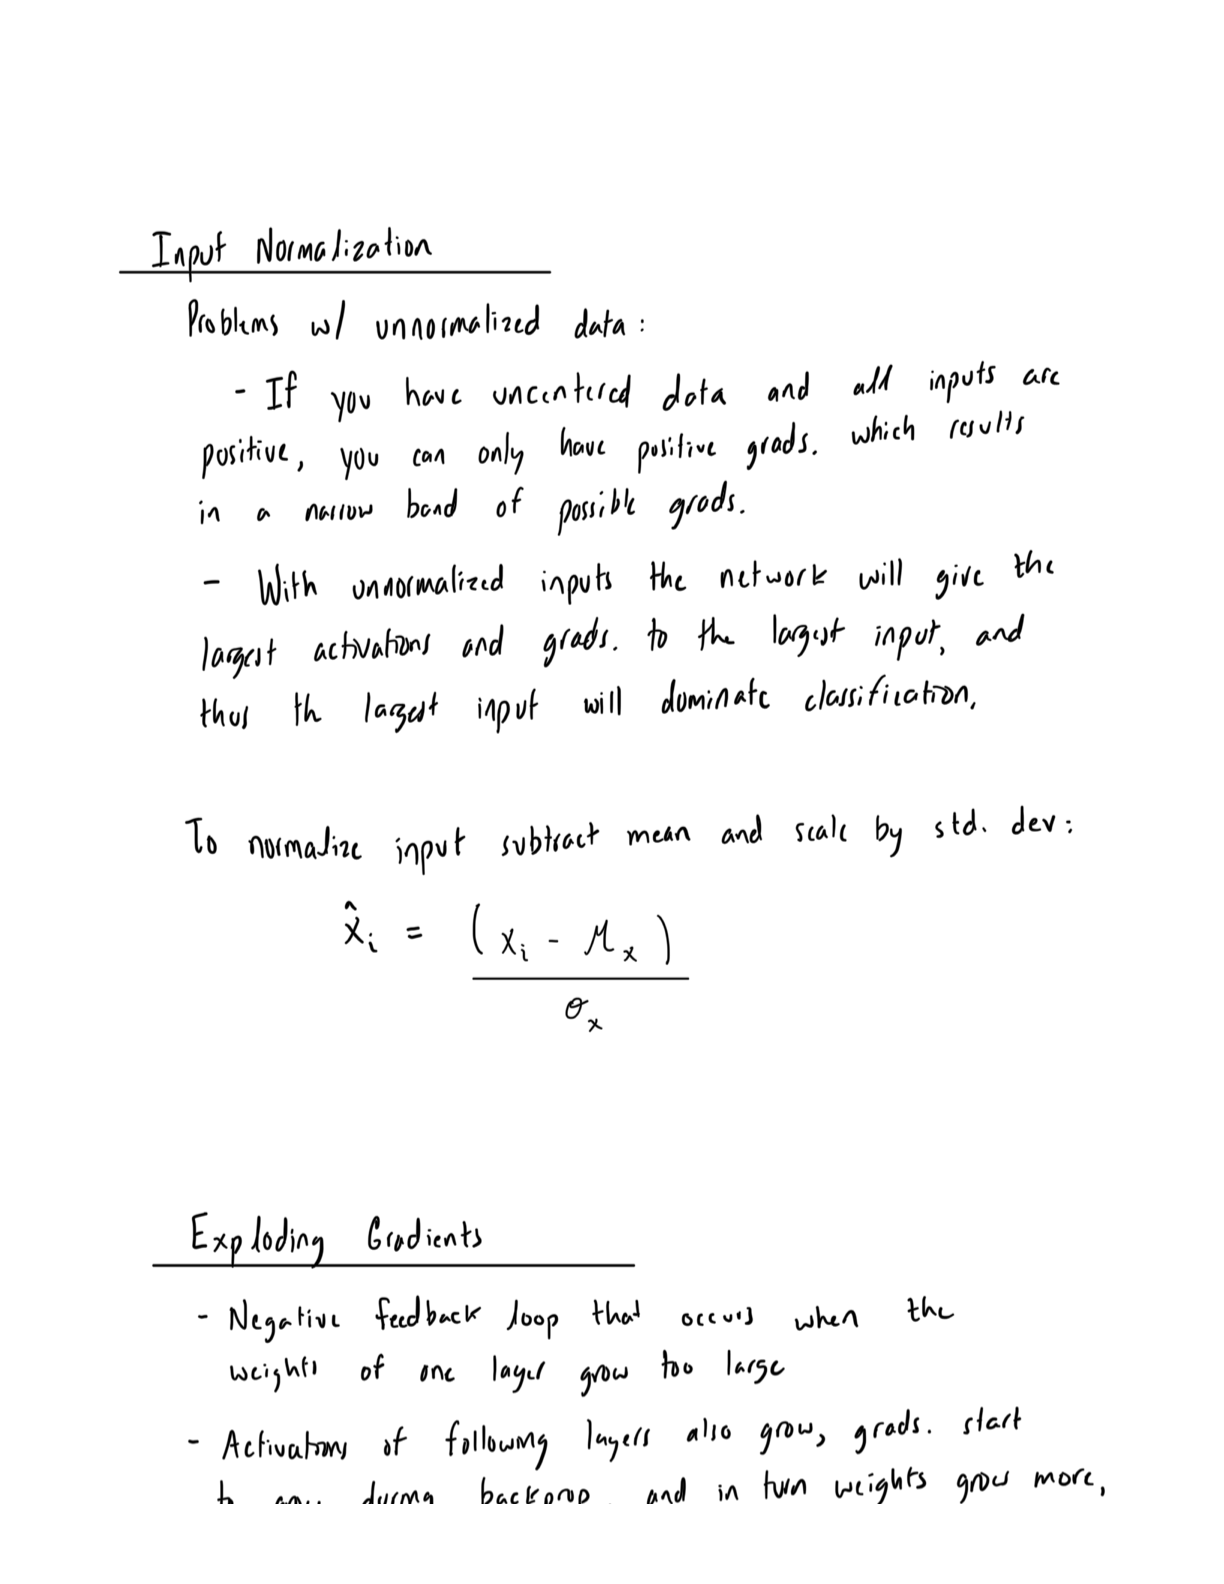 Input Normalization
Problems w/ unnormalized data:
- If you have uncentered data and all inputs are
positive, you can only have positive grads. which results
in a narrow band of possible grads.
- With unnormalized inputs the network will give the
largest activations and grads. to the largest input, and
thus th largest input will dominate classification.
To normalize input subtract mean and scale by std. dev:
x̂ᵢ = (xᵢ - μₓ)
σₓ
Exploding Gradients
- Negative feedback loop that occurs when the
weights of one layer grow too large
- Activations of following layers also grow, grads. start
during backprop, and in turn weights grow more,